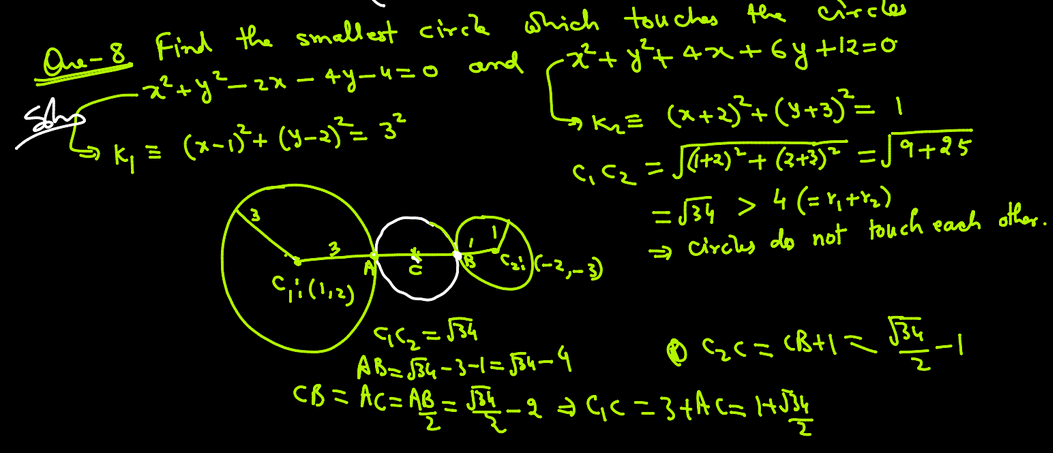 Que-8 Find the smallest circle which touches the circles
x²+y²-2x-4y-4=0 and x²+y²+4x+6y+12=0
Soln
K₁ ≡ (x-1)²+(y-2)²=3²
K₂ ≡ (x+2)²+(y+3)²=1
C₁C₂ = √(1+2)²+(2+3)² = √9+25
= √34 > 4 (=r₁+r₂)
⇒ circles do not touch each other.
3
3
A
C
B
1
1
C₁:(1,2)
C₂:(-2,-3)
C₁C₂=√34
AB=√34-3-1=√34-4
CB = AC = AB/2 = √34/2 - 2 ⇒ C₁C = 3+AC = 1+√34/2
C₂C = CB+1 = √34/2 - 1